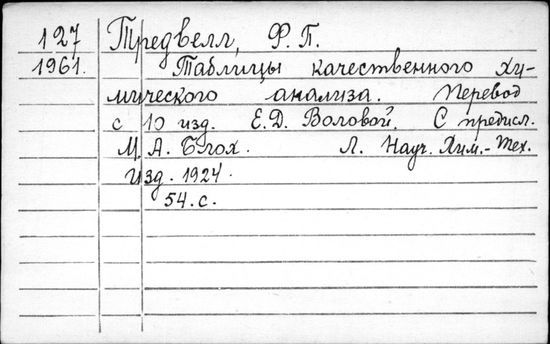 127 Тредвелл, Ф. П.
1961. Таблицы качественного хи-
мического анализа. Перевод
с 10 изд. Е.Д. Воловой. С предисл.
М. А. Блох. Л. Науч. Хим.-Тех.
Изд. 1924.
54. с.